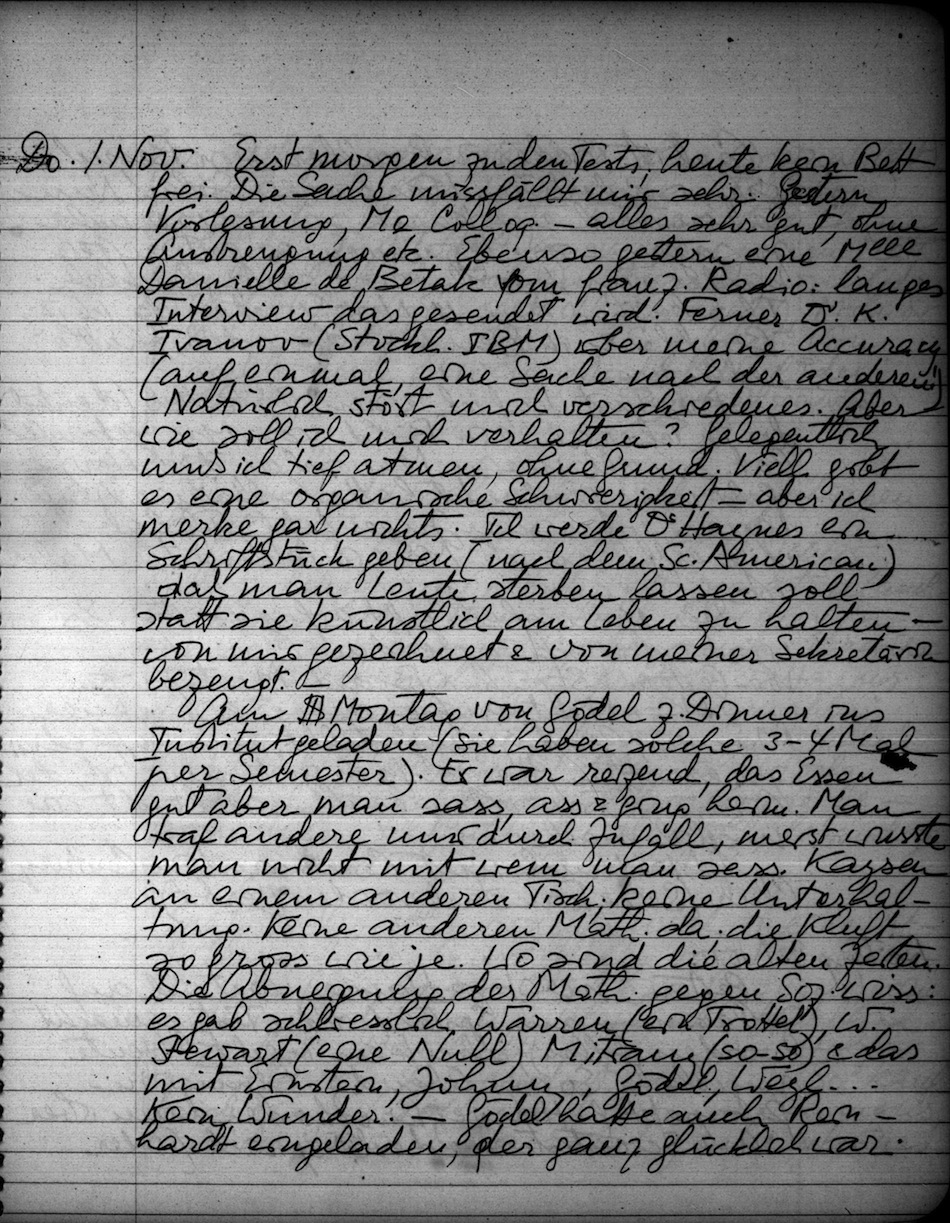 Do. 1. Nov. Erst morgen zu den Tests, heute kein Bett
frei. Die Sache missfällt mir sehr. Gestern
Vorlesung, Ma Colloq. – alles sehr gut, ohne
Anstrengung etc. Ebenso gestern eine Mlle
Danielle de Betak vom franz. Radio: langes
Interview das gesendet wird. Ferner Dr. K.
Ivanov (Stockh. IBM) über meine Accuracy
(auf einmal, eine Sache nach der anderen!)
Natürlich stört mich verschiedenes. Aber
wie soll ich mich verhalten? Gelegentlich
muss ich tief atmen, ohne Grund. Viell. gibt
es eine organische Schwierigkeit – aber ich
merke gar nichts. Ich werde Dr Haynes ein
Schriftstück geben (nach dem Sc. American)
das man Leute sterben lassen soll
statt sie künstlich am Leben zu halten –
von mir gezeichnet & von meiner Sekretärin
bezeugt. –
Am Montag von Gödel z. Dinner ins
Institut geladen (sie haben solche 3–4 Mal
per Semester). Er war reizend, das Essen
gut aber man sass, ass & ging heim. Man
traf andere nur durch Zufall, meist wusste
man nicht mit wem man sass. Kaysen
an einem anderen Tisch; keine Unterhal-
tung. Keine anderen Math. da; die Kluft
so gross wie je. Wo sind die alten Zeiten.
Die Abneigung der Math. gegen Soz. wiss:
es gab schliesslich Warren (ein Trottel), W.
Stewart (eine Null) Mitrany (so-so) & das
mit Einstein, Johnny, Gödel, Weyl...
Kein Wunder! – Gödel hatte auch Rein-
hardt eingeladen, der ganz glücklich war.